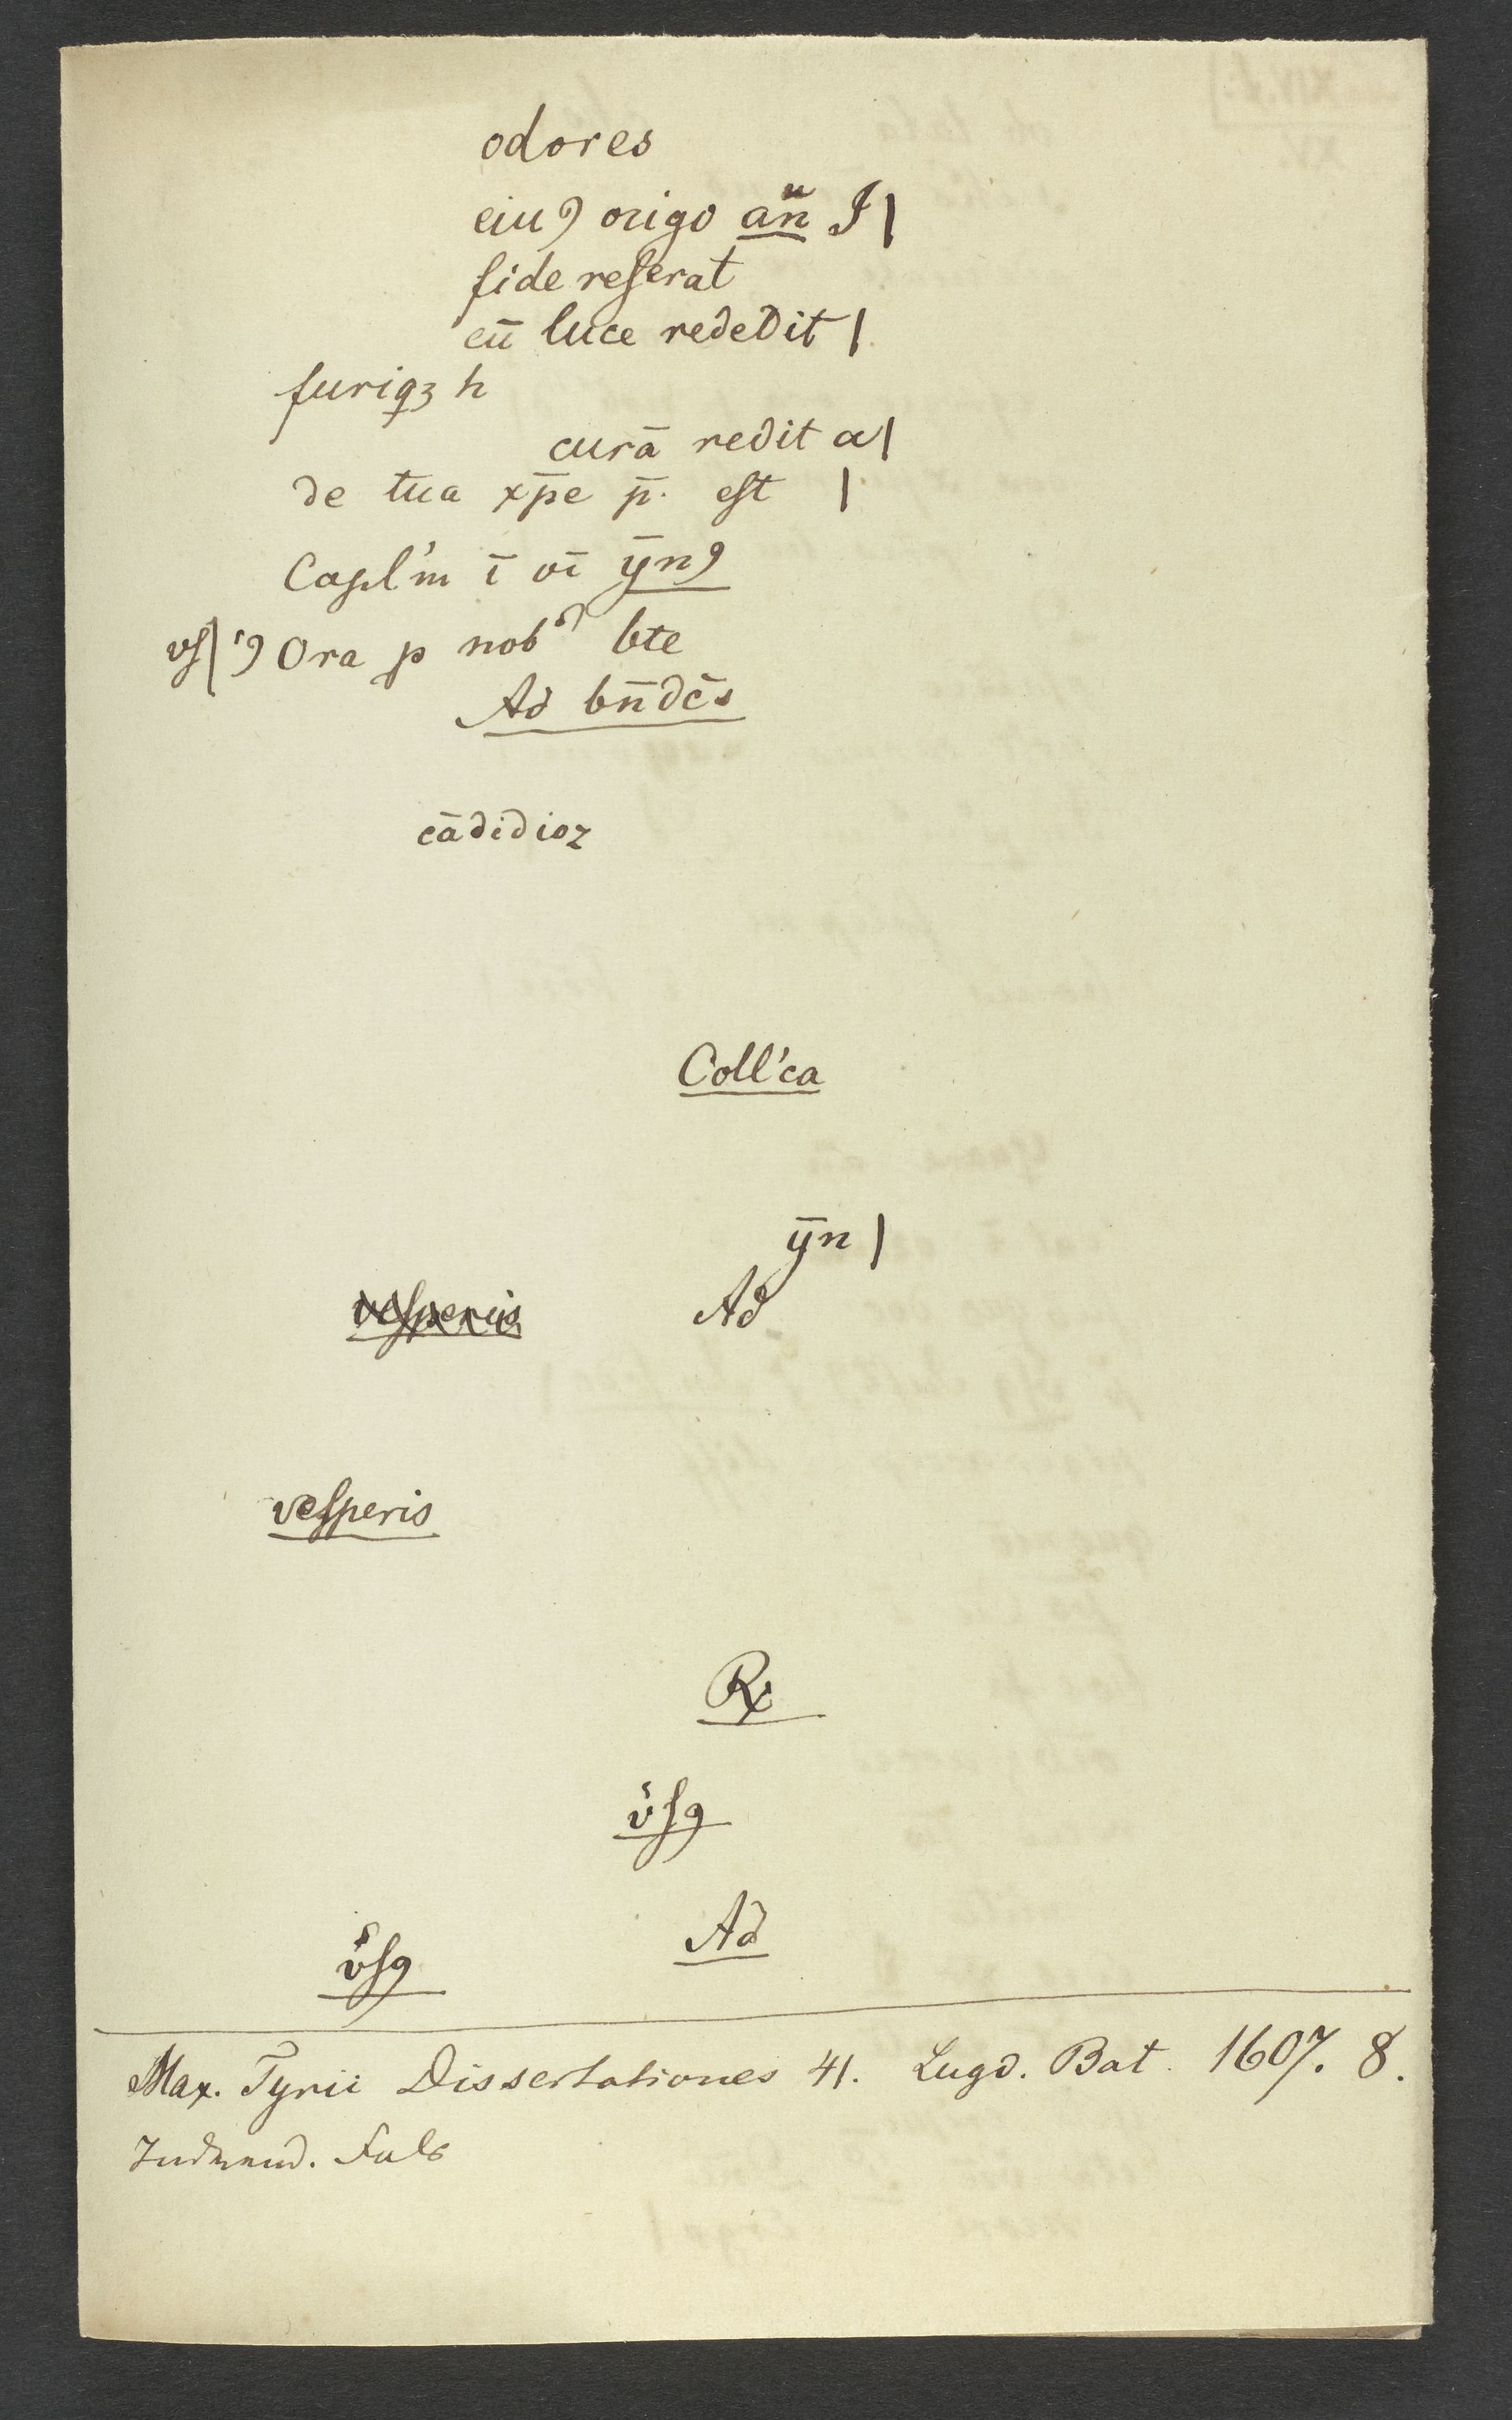 odores
eiuꝯ origo an̄ I|
fide reserat
cū luce rededit |
furiqꝫ h
curā redit a|
de tua xp̄e p̄. eſt |
Capl'm ī vi ȳnꝯ
vſ|'ꝯ Ora p nob bte
Ad bn̄dc̄s
cādidioz
Coll'ca
ȳn |
Ad
veſperis
℞
v̇ſꝯ
Ad
v̇ſꝯ
Max. Tyrii Dissertationes 41. Lugd. Bat. 1607. 8.